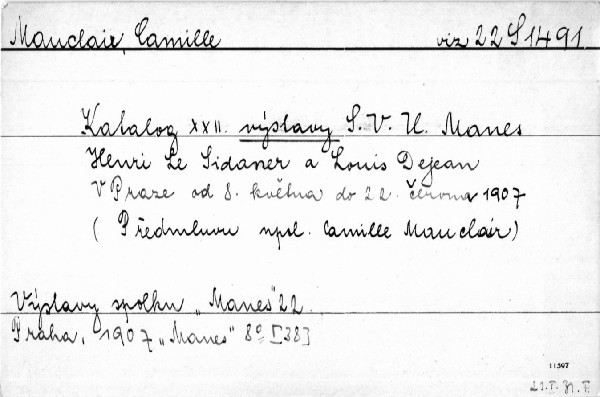 Mauclair, Camille viz 22 S 1491
Katalog XXII. výstavy S. V. U. Manes
Henri Le Sidaner a Louis Dejean
V Praze od 8. května do 22. června 1907
( Předmluvu npsl. Camille Mauclair)
Výstavy spolku „Manes" 22.
Praha, 1907 „Manes" 8º [38]
11597